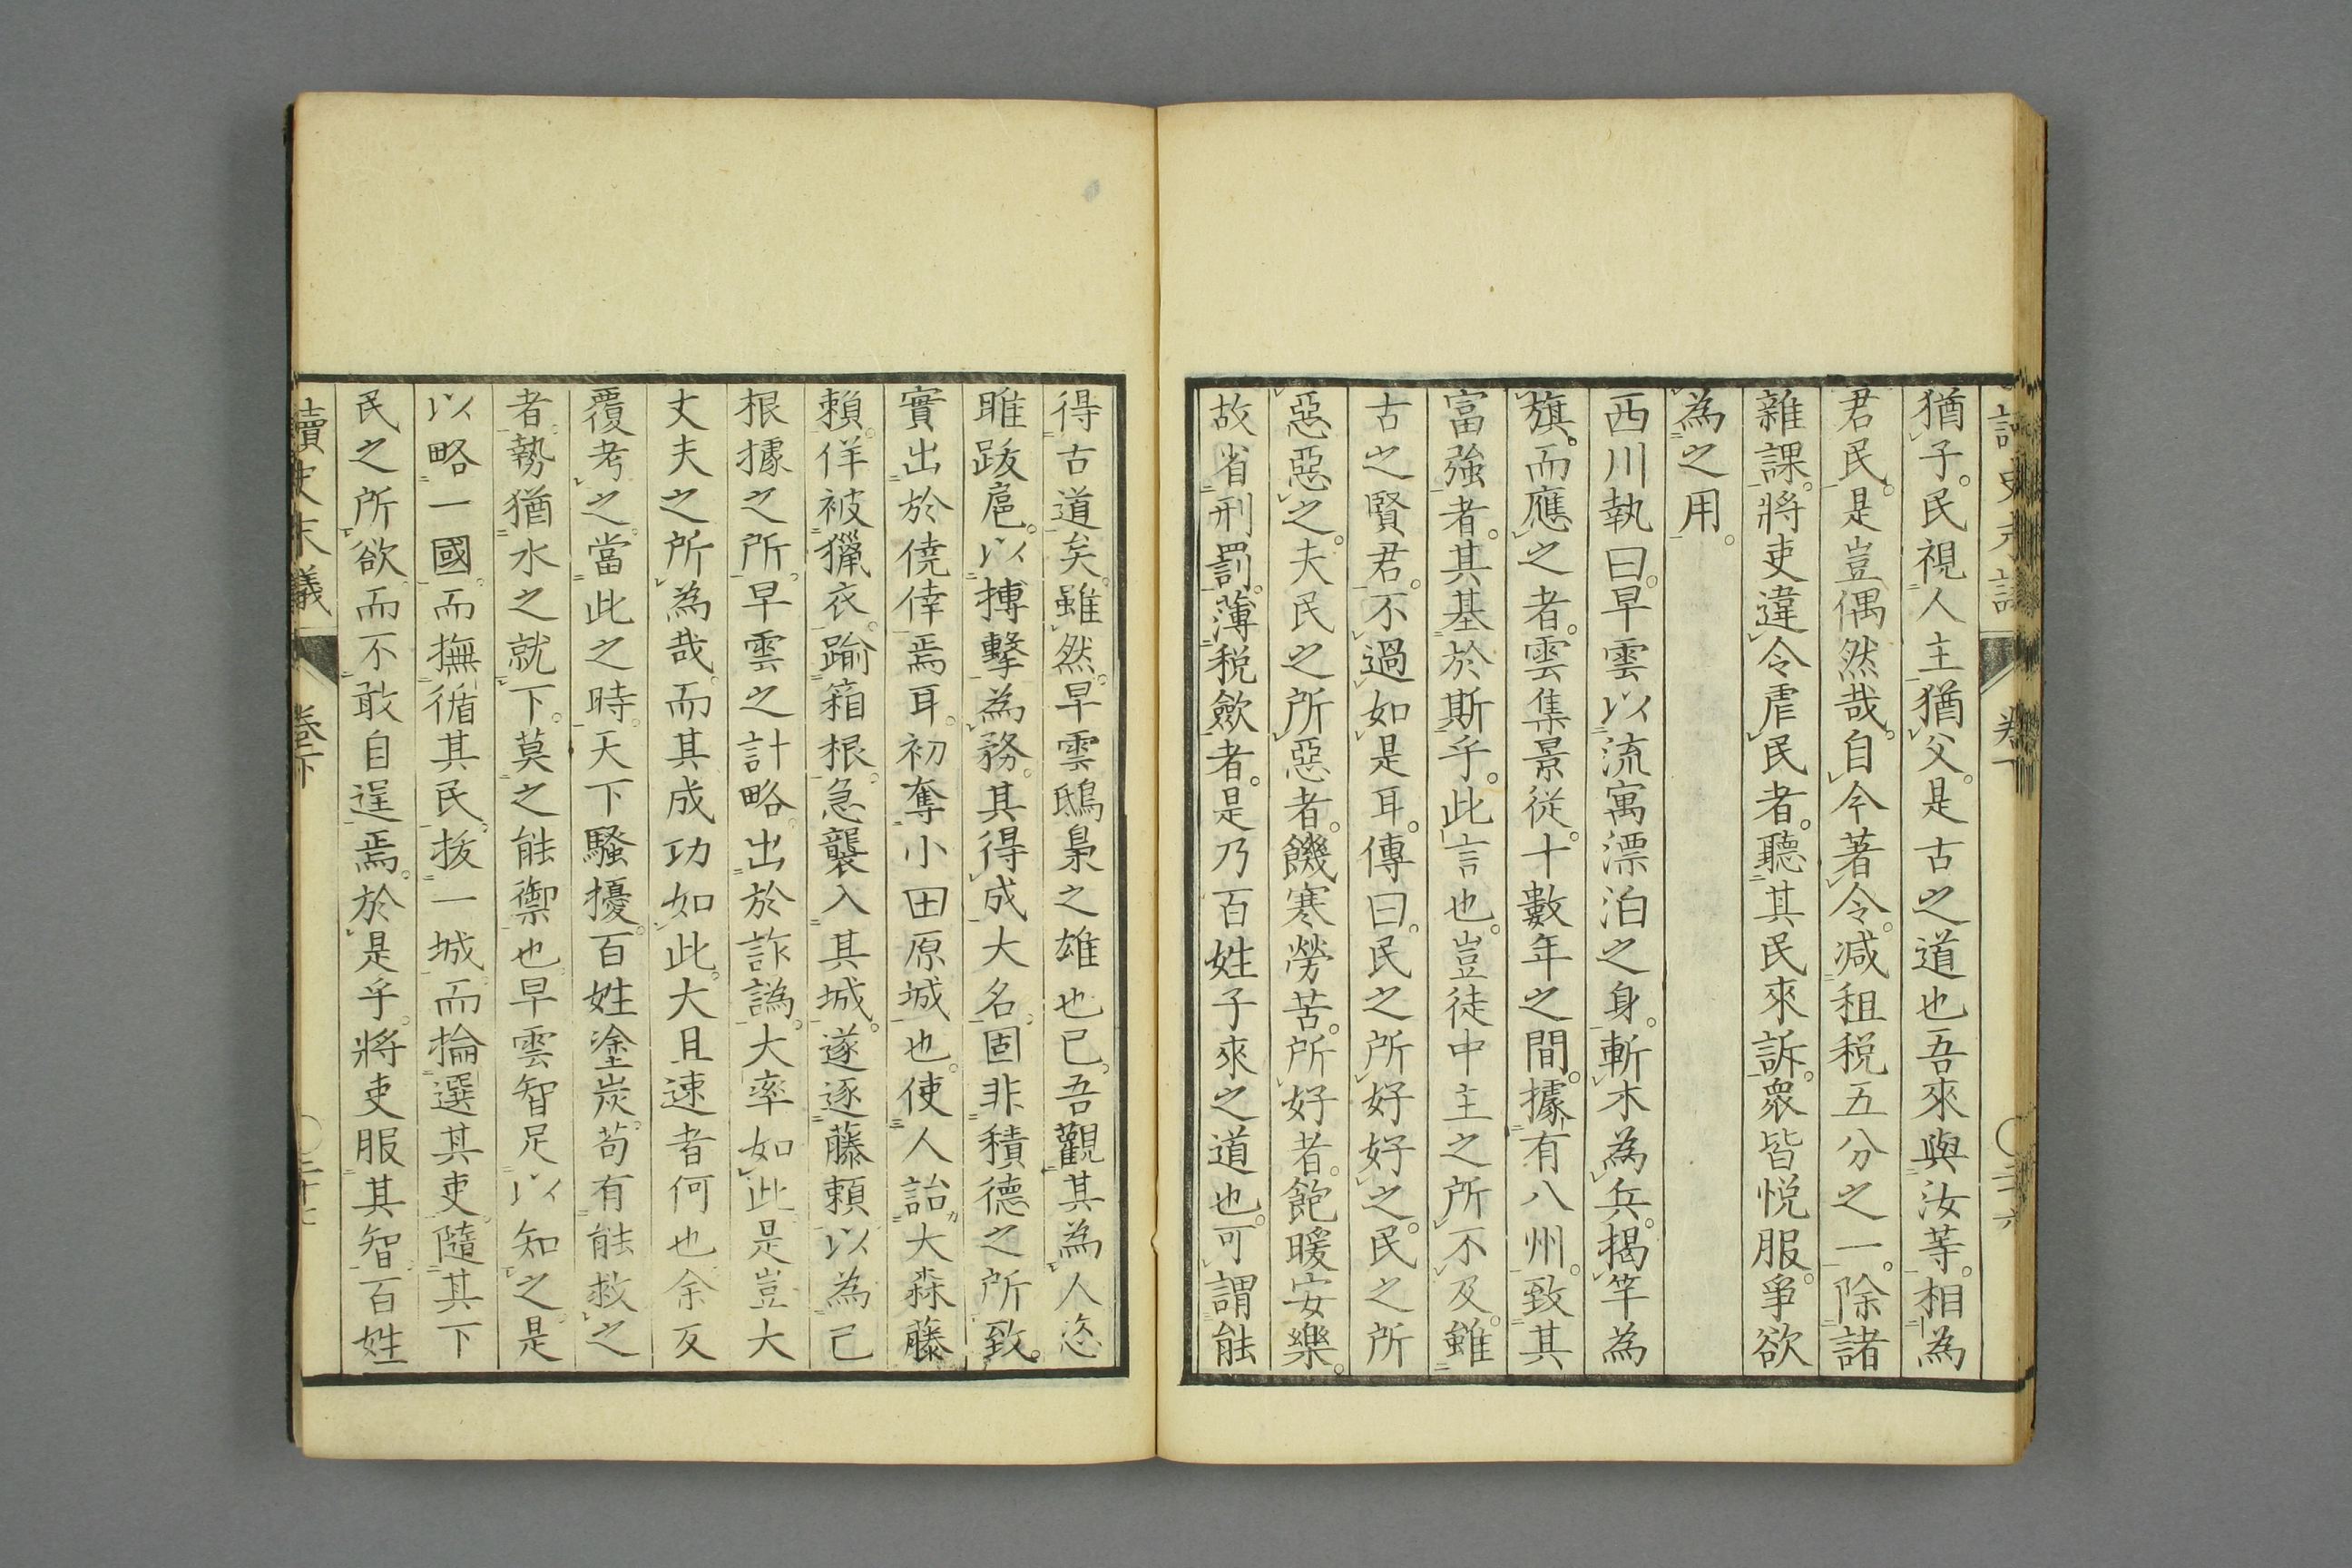 猶子。民視人主猶父。是古之道也吾來與汝等。相為
君民。是豈偶然哉。自今著令。減租税五分之一。除諸
雜課。將吏違令虐民者。聽其民來訴。衆皆悦服。爭欲
為之用。
西川執曰。早雲以流寓漂泊之身。斬木為兵。揭竿為
旗。而應之者。雲集景從。十數年之間。據有八州。致其
富強者。其基於斯乎。此言也。豈徒中主之所不及。雖
古之賢君。不過如是耳。傳曰。民之所好好之。民之所
惡惡之。夫民之所惡者。饑寒勞苦。所好者。飽暖安樂。
故省刑罰。薄税歛者。是乃百姓子來之道也。可謂能
得古道矣。雖然。早雲鴟梟之雄也已。吾觀其為人恣
睢跋扈。以搏擊為務。其得成大名。固非積德之所致。
實出於僥倖焉耳。初奪小田原城也。使人詒大森藤
頼。佯被獵衣。踰箱根。急襲入其城。遂逐藤頼以為己
根據之所。早雲之計略。出於詐譌。大率如此。是豈大
丈夫之所為哉。而其成功如此。大且速者何也余反
覆考之。當此之時。天下騷擾。百姓塗炭。苟有能救之
者。勢猶水之就下。莫之能禦也。早雲智足以知之。是
以略一國。而撫循其民。拔一城。而掄選其吏。隨其下
民之所欲。而不敢自逞焉。於是乎。將吏服其智。百姓
讀史末議 卷下 二十七